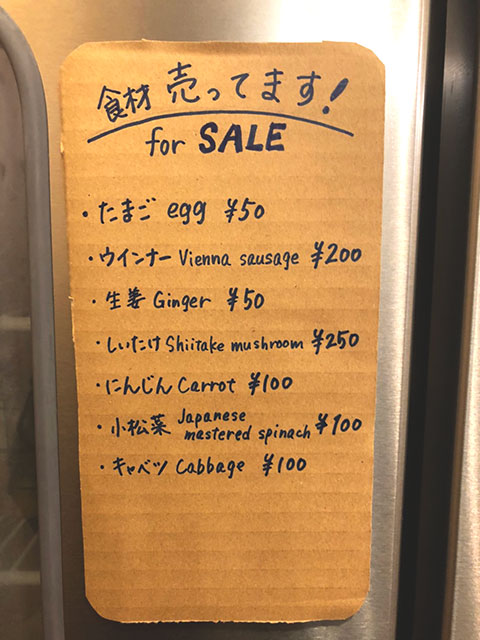 食材 売ってます!
for SALE
・たまご egg ¥50
・ウインナー Vienna sausage ¥200
・生姜 Ginger ¥50
・しいたけ Shiitake mushroom ¥250
・にんじん Carrot ¥100
・小松菜 Japanese
mastered spinach ¥100
・キャベツ Cabbage ¥100